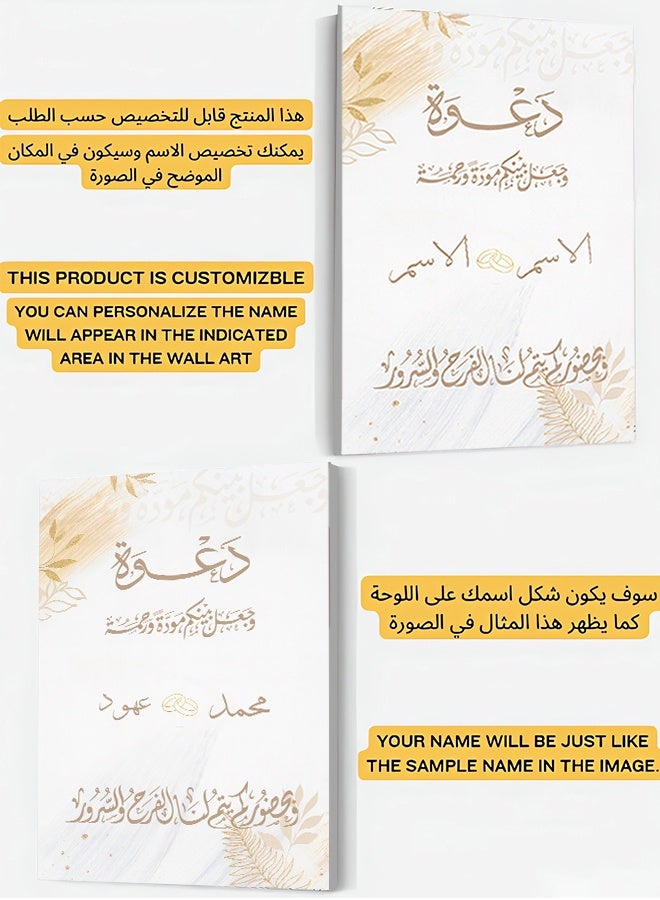 وَجَعَلَ بَيْنَكُم مَوَدَّةً وَ
دَعْوَة
وَجَعَلَ بَيْنَكُم مَوَدَّةً وَرَحْمَةً
الاسم الاسم
وبحضوركم يتم لنا الفرح والسرور
هذا المنتج قابل للتخصيص حسب الطلب
يمكنك تخصيص الاسم وسيكون في المكان
الموضح في الصورة
THIS PRODUCT IS CUSTOMIZBLE
YOU CAN PERSONALIZE THE NAME
WILL APPEAR IN THE INDICATED
AREA IN THE WALL ART
وَجَعَلَ بَيْنَكُم مَوَدَّةً وَ
دَعْوَة
وَجَعَلَ بَيْنَكُم مَوَدَّةً وَرَحْمَةً
محمد عهود
وبحضوركم يتم لنا الفرح والسرور
سوف يكون شكل اسمك على اللوحة
كما يظهر هذا المثال في الصورة
YOUR NAME WILL BE JUST LIKE
THE SAMPLE NAME IN THE IMAGE.